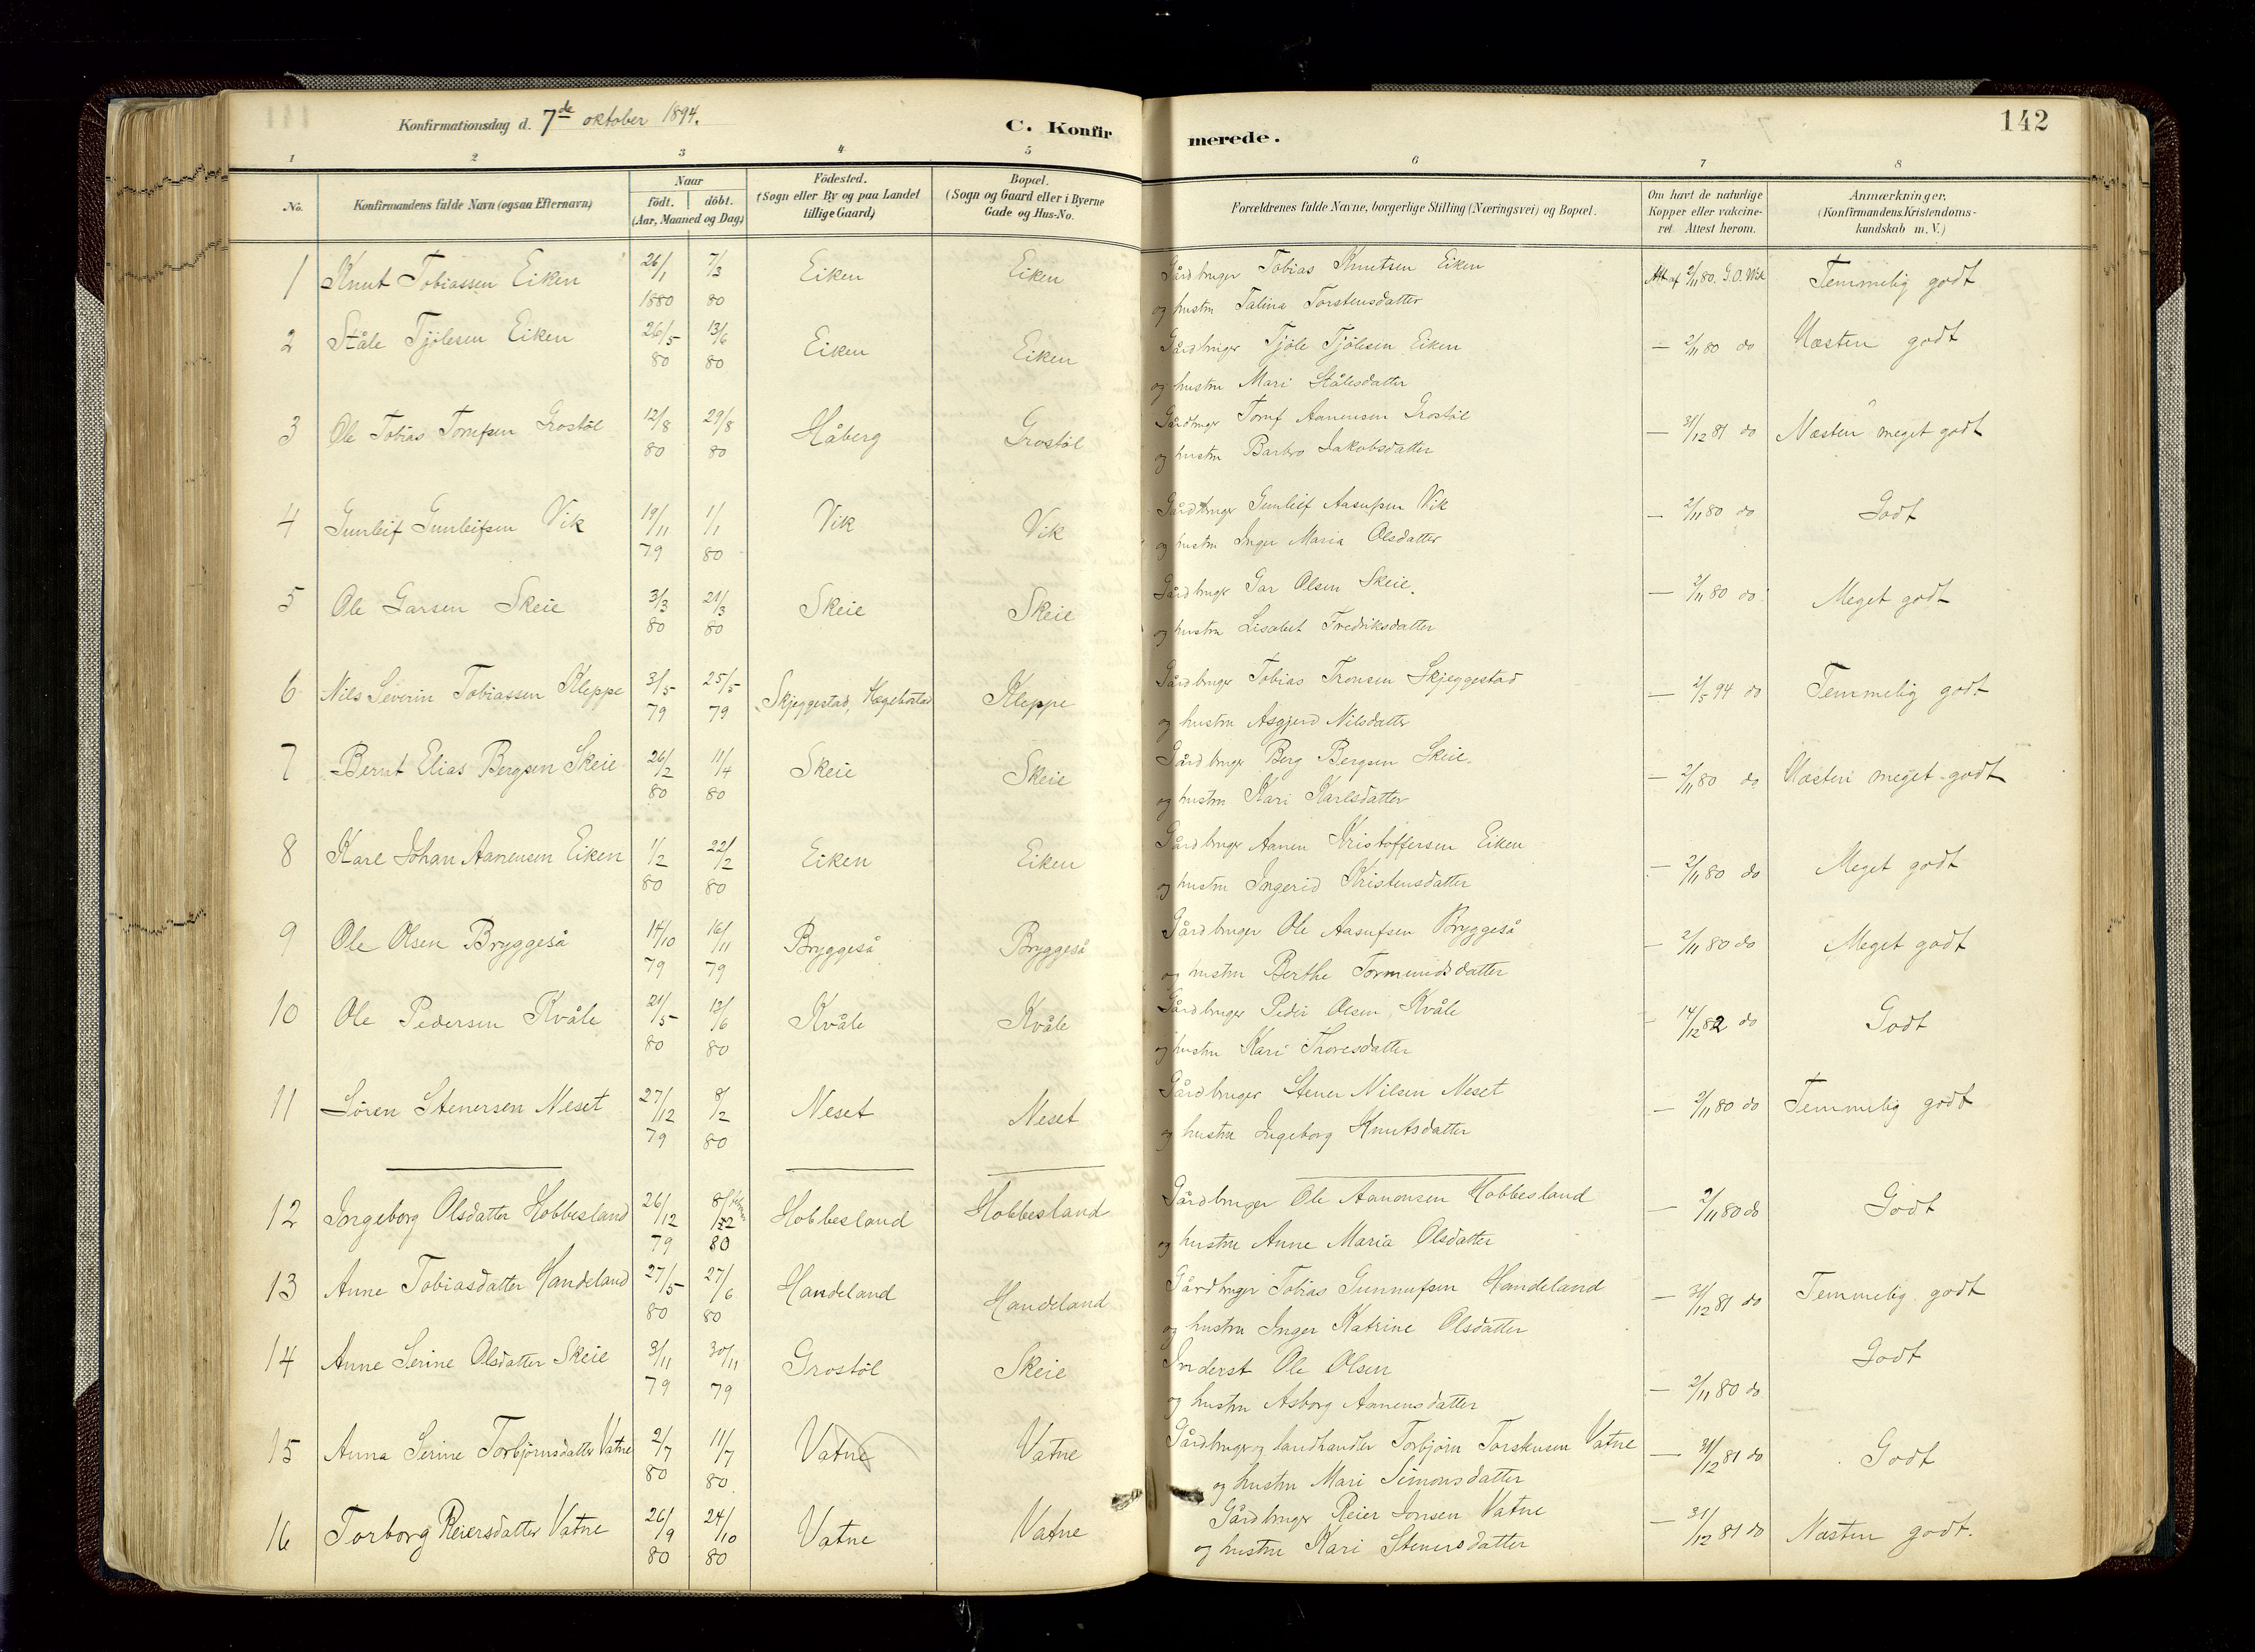 Konfirmationsdag d. 7de oktober 1894. C. Konfirmerede. 142
1 2 3 4 5 6 7 8
No. Konfirmandens fulde Navn (ogsaa Efternavn) Naar født. døbt. (Aar, Maaned og Dag) Fødested. (Sogn eller By og paa Landet tillige Gaard) Bopæl. (Sogn og Gaard eller i Byerne Gade og Hus-No. Forældrenes fulde Navne, borgerlige Stilling (Næringsvei) og Bopæl. Om havt de naturlige Kopper eller vakcineret. Attest herom. Anmærkninger, (Konfirmandens Kristendomskundskab m. V.)
1 Knut Tobiassen Eiken 26/1 1880 7/3 80 Eiken Eiken Gårdbruger Tobias Knutsen Eiken Att af 2/11 80. G.O. Vik Temmelig godt
og hustru Talina Torstensdatter
2 Ståle Tjølesen Eiken 26/5 80 13/6 80 Eiken Eiken Gårdbruger Tjøle Tjølesen Eiken — 2/11 80 do Næsten godt
og hustru Mari Stålesdatter
3 Ole Tobias Tomfsen Grostøl 12/8 80 29/8 80 Håberg Grostøl Gårdbruger Aanensen Grostøl — 31/12 81 do Næsten meget godt
og hustru Barbro Jakobsdatter
4 Gunleif Gunleifsen Vik 19/11 79 1/1 80 Vik Vik Gårdbruger Gunleif Aasufsen Vik — 2/11 80 do Godt
og hustru Inger Maria Olsdatter
5 Ole Garsen Skeie 3/3 80 21/3 80 Skeie Skeie Gårdbruger Gar Olsen Skeie. — 2/11 80 do Meget godt
og hustru Lisabet Fredriksdatter
6 Nils Severin Tobiassen Kleppe 3/5 79 25/5 79 Skjeggestad, Hægebostad Kleppe Gårdbruger Tobias Tronsen Skjeggestad — 2/5 94 do Temmelig godt
og hustru Asgjerd Nilsdatter
7 Bernt Elias Bergsen Skeie 26/2 80 11/4 80 Skeie Skeie Gårdbruger Berg Bergsen Skeie. — 2/11 80 do Næsten meget godt
og hustru Kari Karlsdatter
8 Karl Johan Aanensen Eiken 1/2 80 22/2 80 Eiken Eiken Gårdbruger Aanen Kristoffersen Eiken — 2/11 80 do Meget godt
og hustru Ingerid Kristensdatter
9 Ole Olsen Bryggeså 14/10 79 16/11 79 Bryggeså Bryggeså Gårdbruger Ole Aasufsen Bryggeså — 2/11 80 do Meget godt
og hustru Berthe Tormundsdatter
10 Ole Pedersen Kvåle 21/5 80 13/6 80 Kvåle Kvåle Gårdbruger Peder Olsen Kvåle — 14/12 82 do Godt
og hustru Kari Thoresdatter
11 Søren Stenersen Neset 27/12 79 8/2 80 Neset Neset Gårdbruger Stener Nilsen Neset — 2/11 80 do Temmelig godt
og hustru Ingeborg Knutsdatter
12 Ingeborg Olsdatter Hobbesland 26/12 79 8/2 80 Hobbesland Hobbesland Gårdbruger Ole Aanonsen Hobbesland — 2/11 80 do Godt
og hustru Anne Maria Olsdatter
13 Anne Tobiasdatter Handeland 27/5 80 27/6 80 Handeland Handeland Gårdbruger Tobias Gunnufsen Handeland — 31/12 81 do Temmelig godt
og hustru Inger Katrine Olsdatter
14 Anne Serine Olsdatter Skeie 3/11 79 30/11 79 Grostøl Skeie Inderst Ole Olsen — 2/11 80 do Godt
og hustru Asborg Aanensdatter
15 Anna Serine Torbjørnsdatter Vatne 2/7 80 11/7 80 Vatne Vatne Gårdbruger og landhandler Torbjørn Torstensen Vatne — 31/12 81 do Godt
og hustru Mari Simonsdatter
16 Torborg Reiersdatter Vatne 26/9 80 24/10 80 Vatne Vatne Gårdbruger Reier Jonsen Vatne — 31/12 81 do Næsten godt.
og hustru Kari Stenersdatter